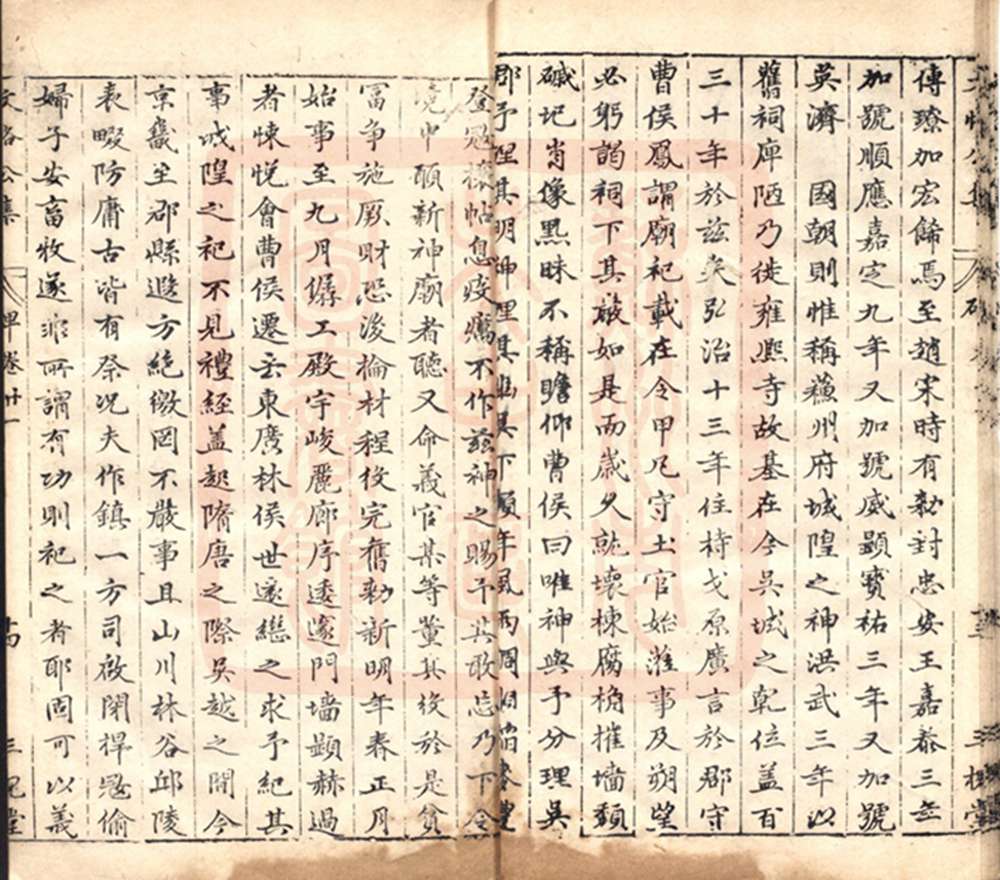 傳瞭加宏餙焉至趙宋時有勑封忠安王嘉泰三年
加號順應嘉定九年又加號威顯寳祐三年又加號
英濟　國朝則惟稱蘓州府城隍之神洪武三年以
舊祠庳陋乃徙雍熙寺故基在今吳城之乾位盖百
三十年於兹矣弘治十三年住持戈原廣言於郡守
曹侯鳳謂廟祀載在令甲凡守土官始涖事及朔望
必躬謁祠下其敬如是而歲久就壊棟腐桷摧墻頽
磩圮肖像黑昧不稱瞻仰曹侯曰唯神與予分理吳
郡予理其明神理其幽其下順年風雨
登冦攘帖息疫癘不作兹神之賜予其敢忘乃下令
中願新神廟者聽又命義官某等董其役於是貧
富争施厥財恐後掄材程役完舊勑新明年春正月
始事至九月僝工殿宇峻麗廊序邃門墻顯赫過
者悚悦會曹侯遷云東廣林侯世遠繼之求予紀其
事城隍之祀不見禮經盖起隋唐之際吳越之間今
京畿至郡縣遐方絶徼罔不嚴事且山川林谷邱陵
表畷防庸古皆有祭况夫作鎮一方司啟閉捍冦偷
婦子安畜牧遂非所謂有功則祀之者耶固可以義
文恪公集
卷廿一
三槐堂